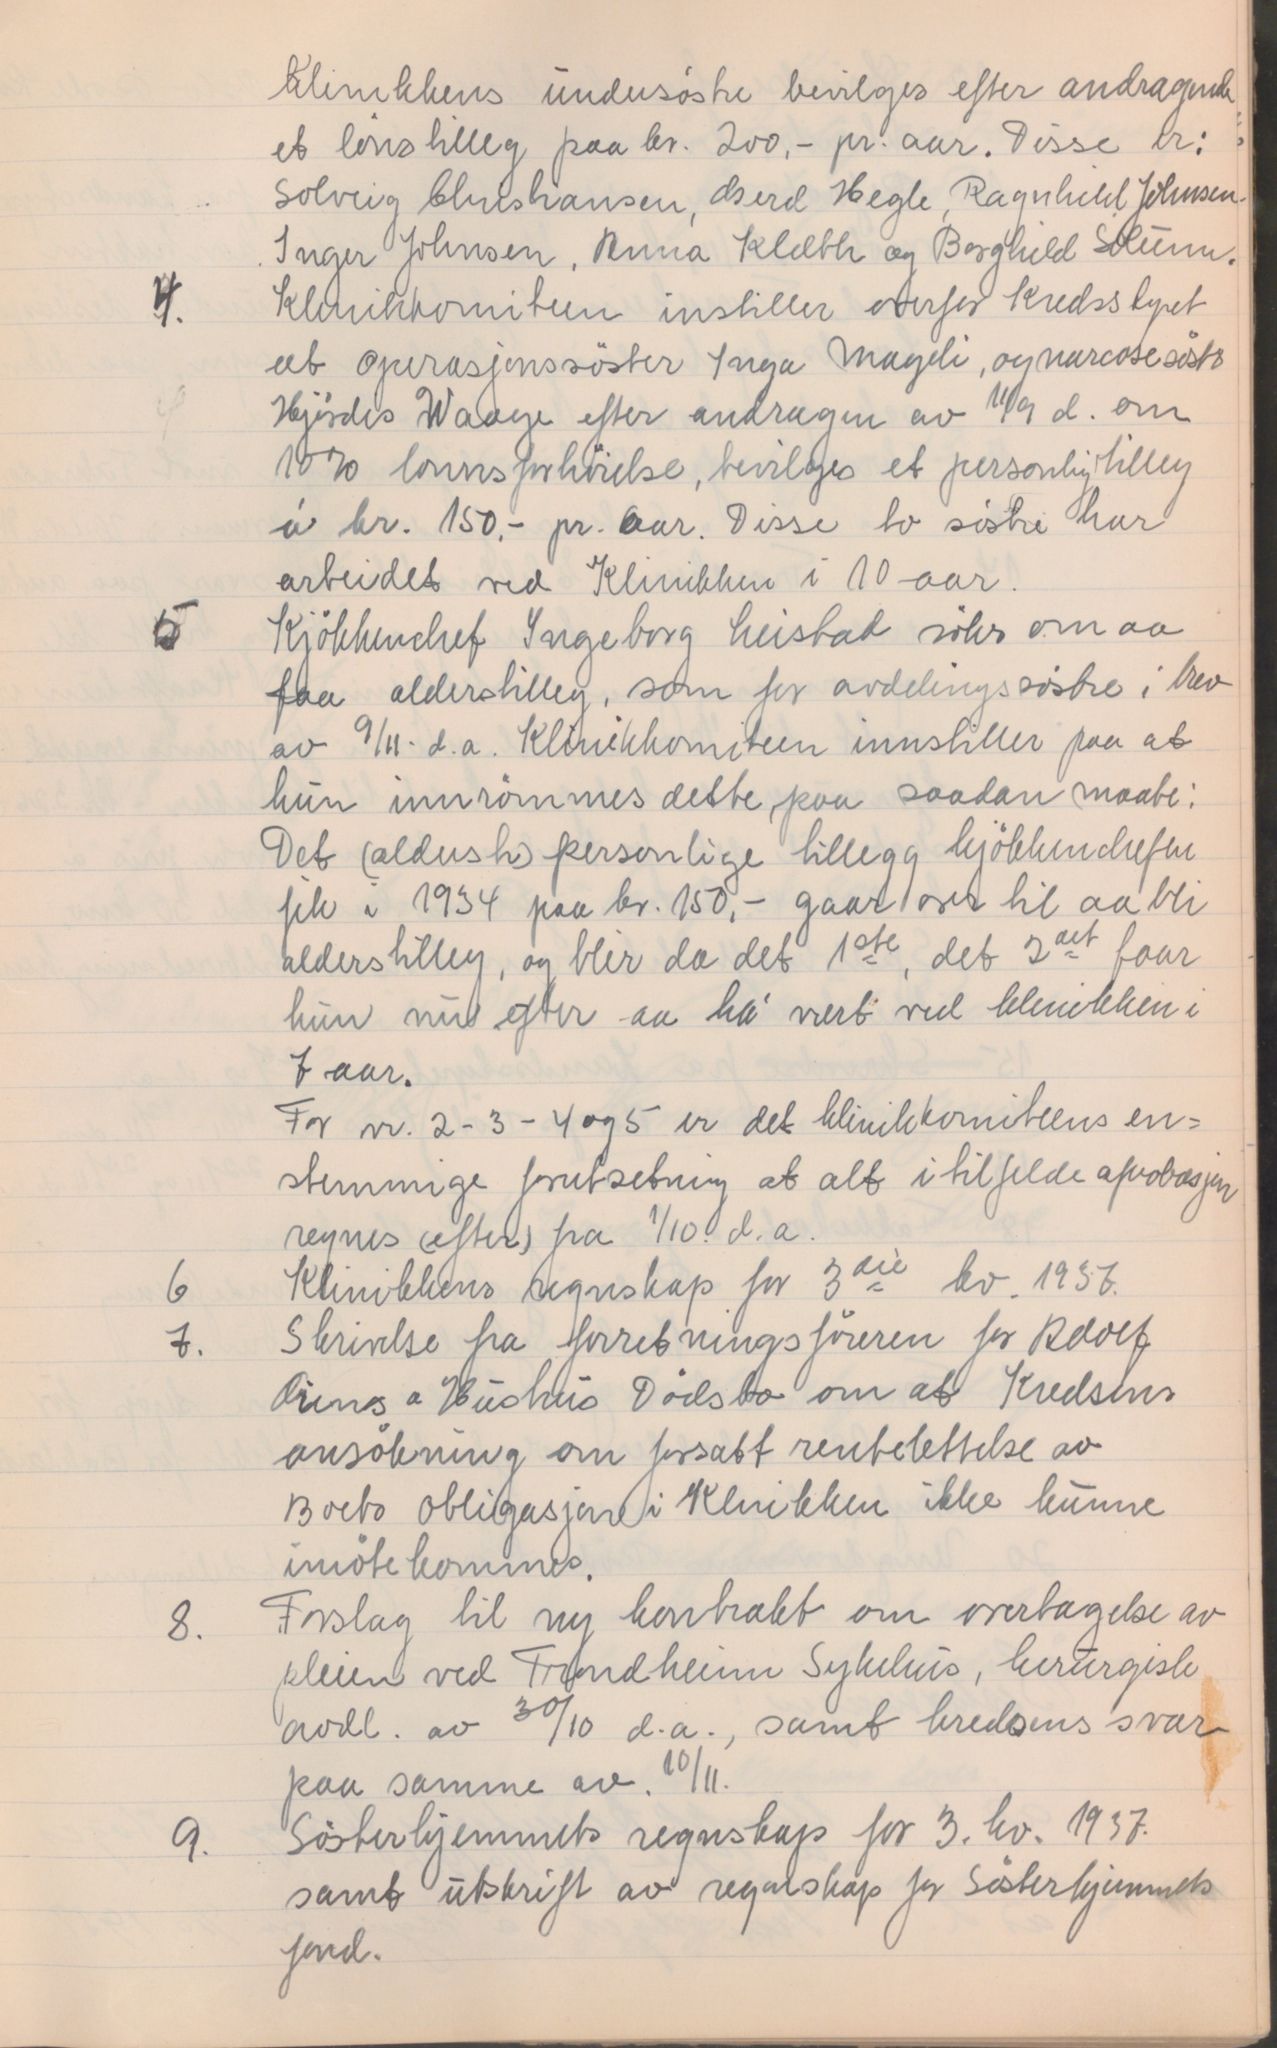 Klinikkens undersöstre bevilges efter andragende
et lönstilleg paa kr. 200,- pr. aar. Disse er:
Solveig Christiansen, Gerd Hegle, Ragnhild Johnsen.
Inger Johnsen, Anna Klæth og Borghild Solum.
4. Klinikkomiteen instiller overfor Kredsstyret
at operasjonssöster Inga Mageli, og narcosesöster
Hjördis Waage efter andragen av 11/9 d. om
10% lönnsforhöielse, bevilges et personlig tilleg
á kr. 150,- pr. aar. Disse to söstre har
arbeidet ved Klinikken i 10 aar.
5 Kjökkenchef Ingeborg Leistad söker om aa
faa alderstilleg, som for avdelingssöstre i brev
av 9/11. d.a. Klinikkomiteen innstiller paa at
hun innrömmes dette, paa saadan maate:
Det (alderst) personlige tillegg kjökkenchefen
fik i 1934 paa kr. 150,- gaar over til aa bli
alderstilleg, og blir da det 1ste, det 2det faar
hun nu efter aa ha vert ved klinikken i
7 aar.
For nr. 2-3-4 og 5 er det klinikkomiteens en=
stemmige forutsetning at alt i tilfelde aprobasjon
regnes (efter) fra 1/10. d.a.
6 Klinikkens regnskap for 3die kv. 1937.
7. Skrivelse fra forretningsföreren for Adolf
Öiens & Hustrus Dödsbo om at Kredsens
ansökning om forsatt rentelettelse av
Boets obligasjon i Klinikken ikke kunne
imötekommes.
8. Forslag til ny kontrakt om overtagelse av
pleien ved Trondheim Sykehus, kirurgisk
avdl. av 30/10 d.a., samt kredsens svar
paa samme av. 10/11.
9. Sösterhjemmets regnskap for 3. kv. 1937.
samt utskrift av regnskap for Sösterhjemmets
fond.